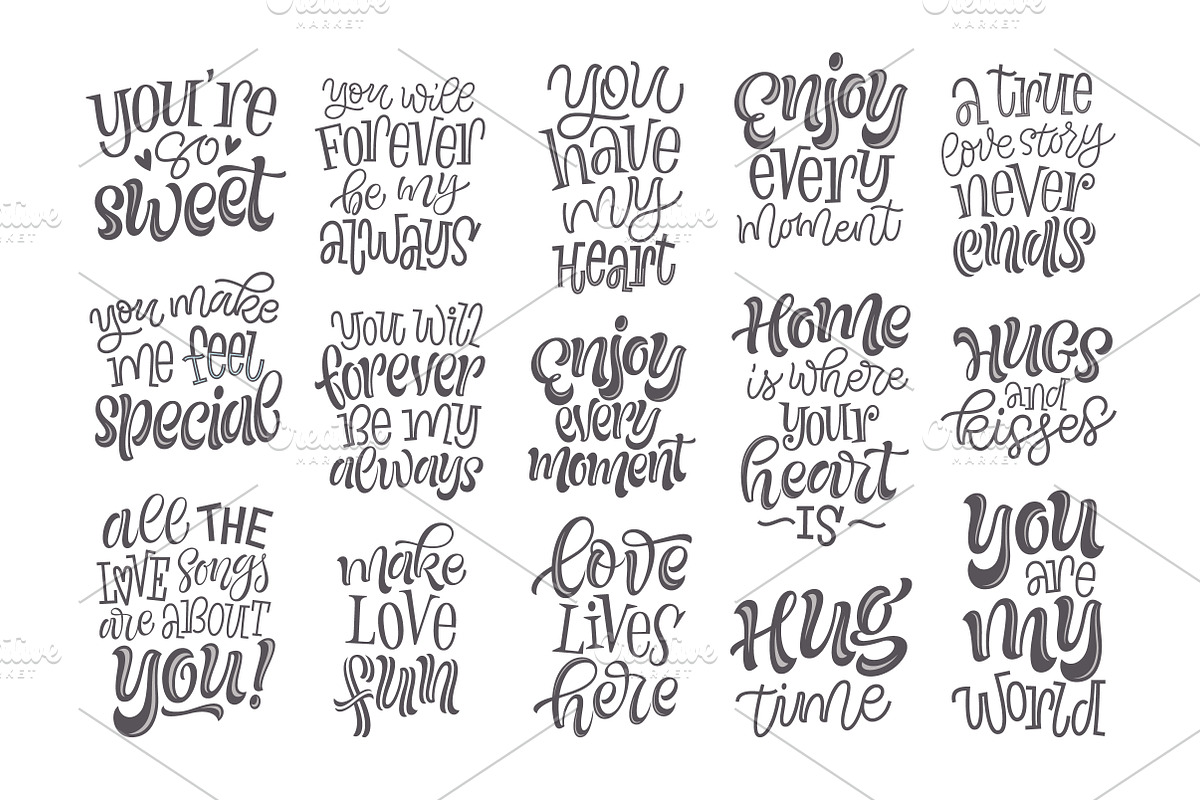 you're
so
sweet
you make
me feel
special
all THE
LOVE songs
are ABOUT
you!
you will
Forever
be my
always
you will
forever
Be my
always
make
LOVE
fun
you
have
my
Heart
enjoy
every
moment
love
Lives
here
enjoy
every
moment
Home
is where
your
heart
~IS~
Hug
time
a true
love story
never
ends
HUGS
and
kisses
you
are
my
world
Creative
MARKET
Creative
MARKET
Creative
MARKET
Creative
MARKET
Creative
MARKET
Creative
MARKET
Creative
MARKET
Creative
MARKET